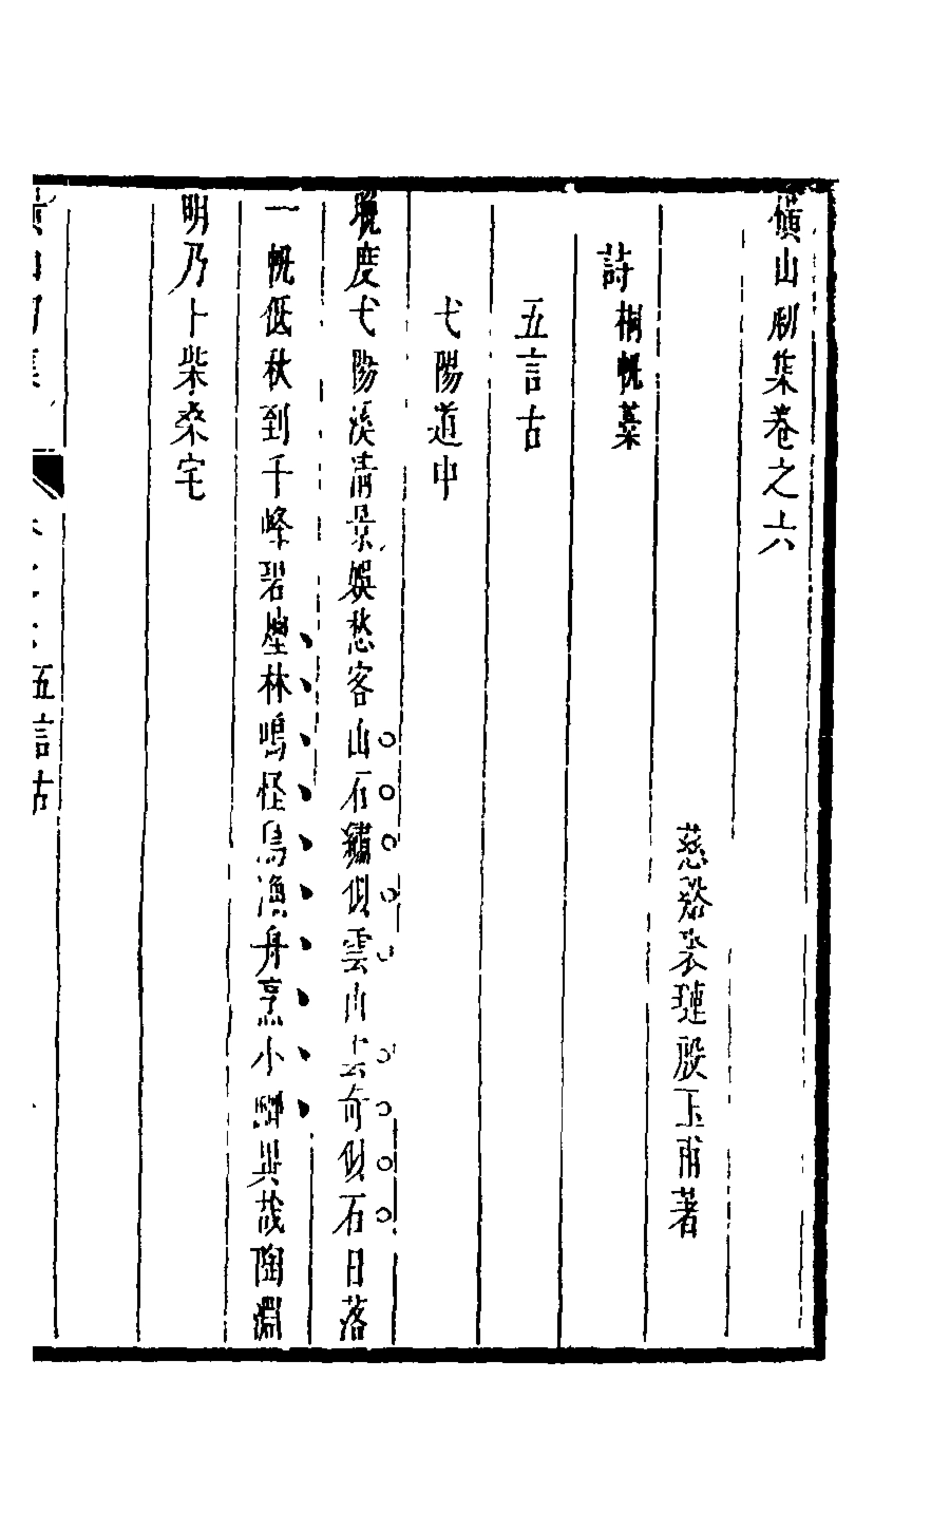 橫山初集卷之六
慈谿裘璉殷玉甫著
詩 桐帆藁
五言古
弋陽道中
晚度弋陽溪清景娛愁客山石繡似雲山雲奇似石日落
一帆低秋到千峰碧壑林鳴怪鳥漁舟烹小鯽異哉陶淵
明乃卜柴桑宅
橫山初集 卷之六 五言古